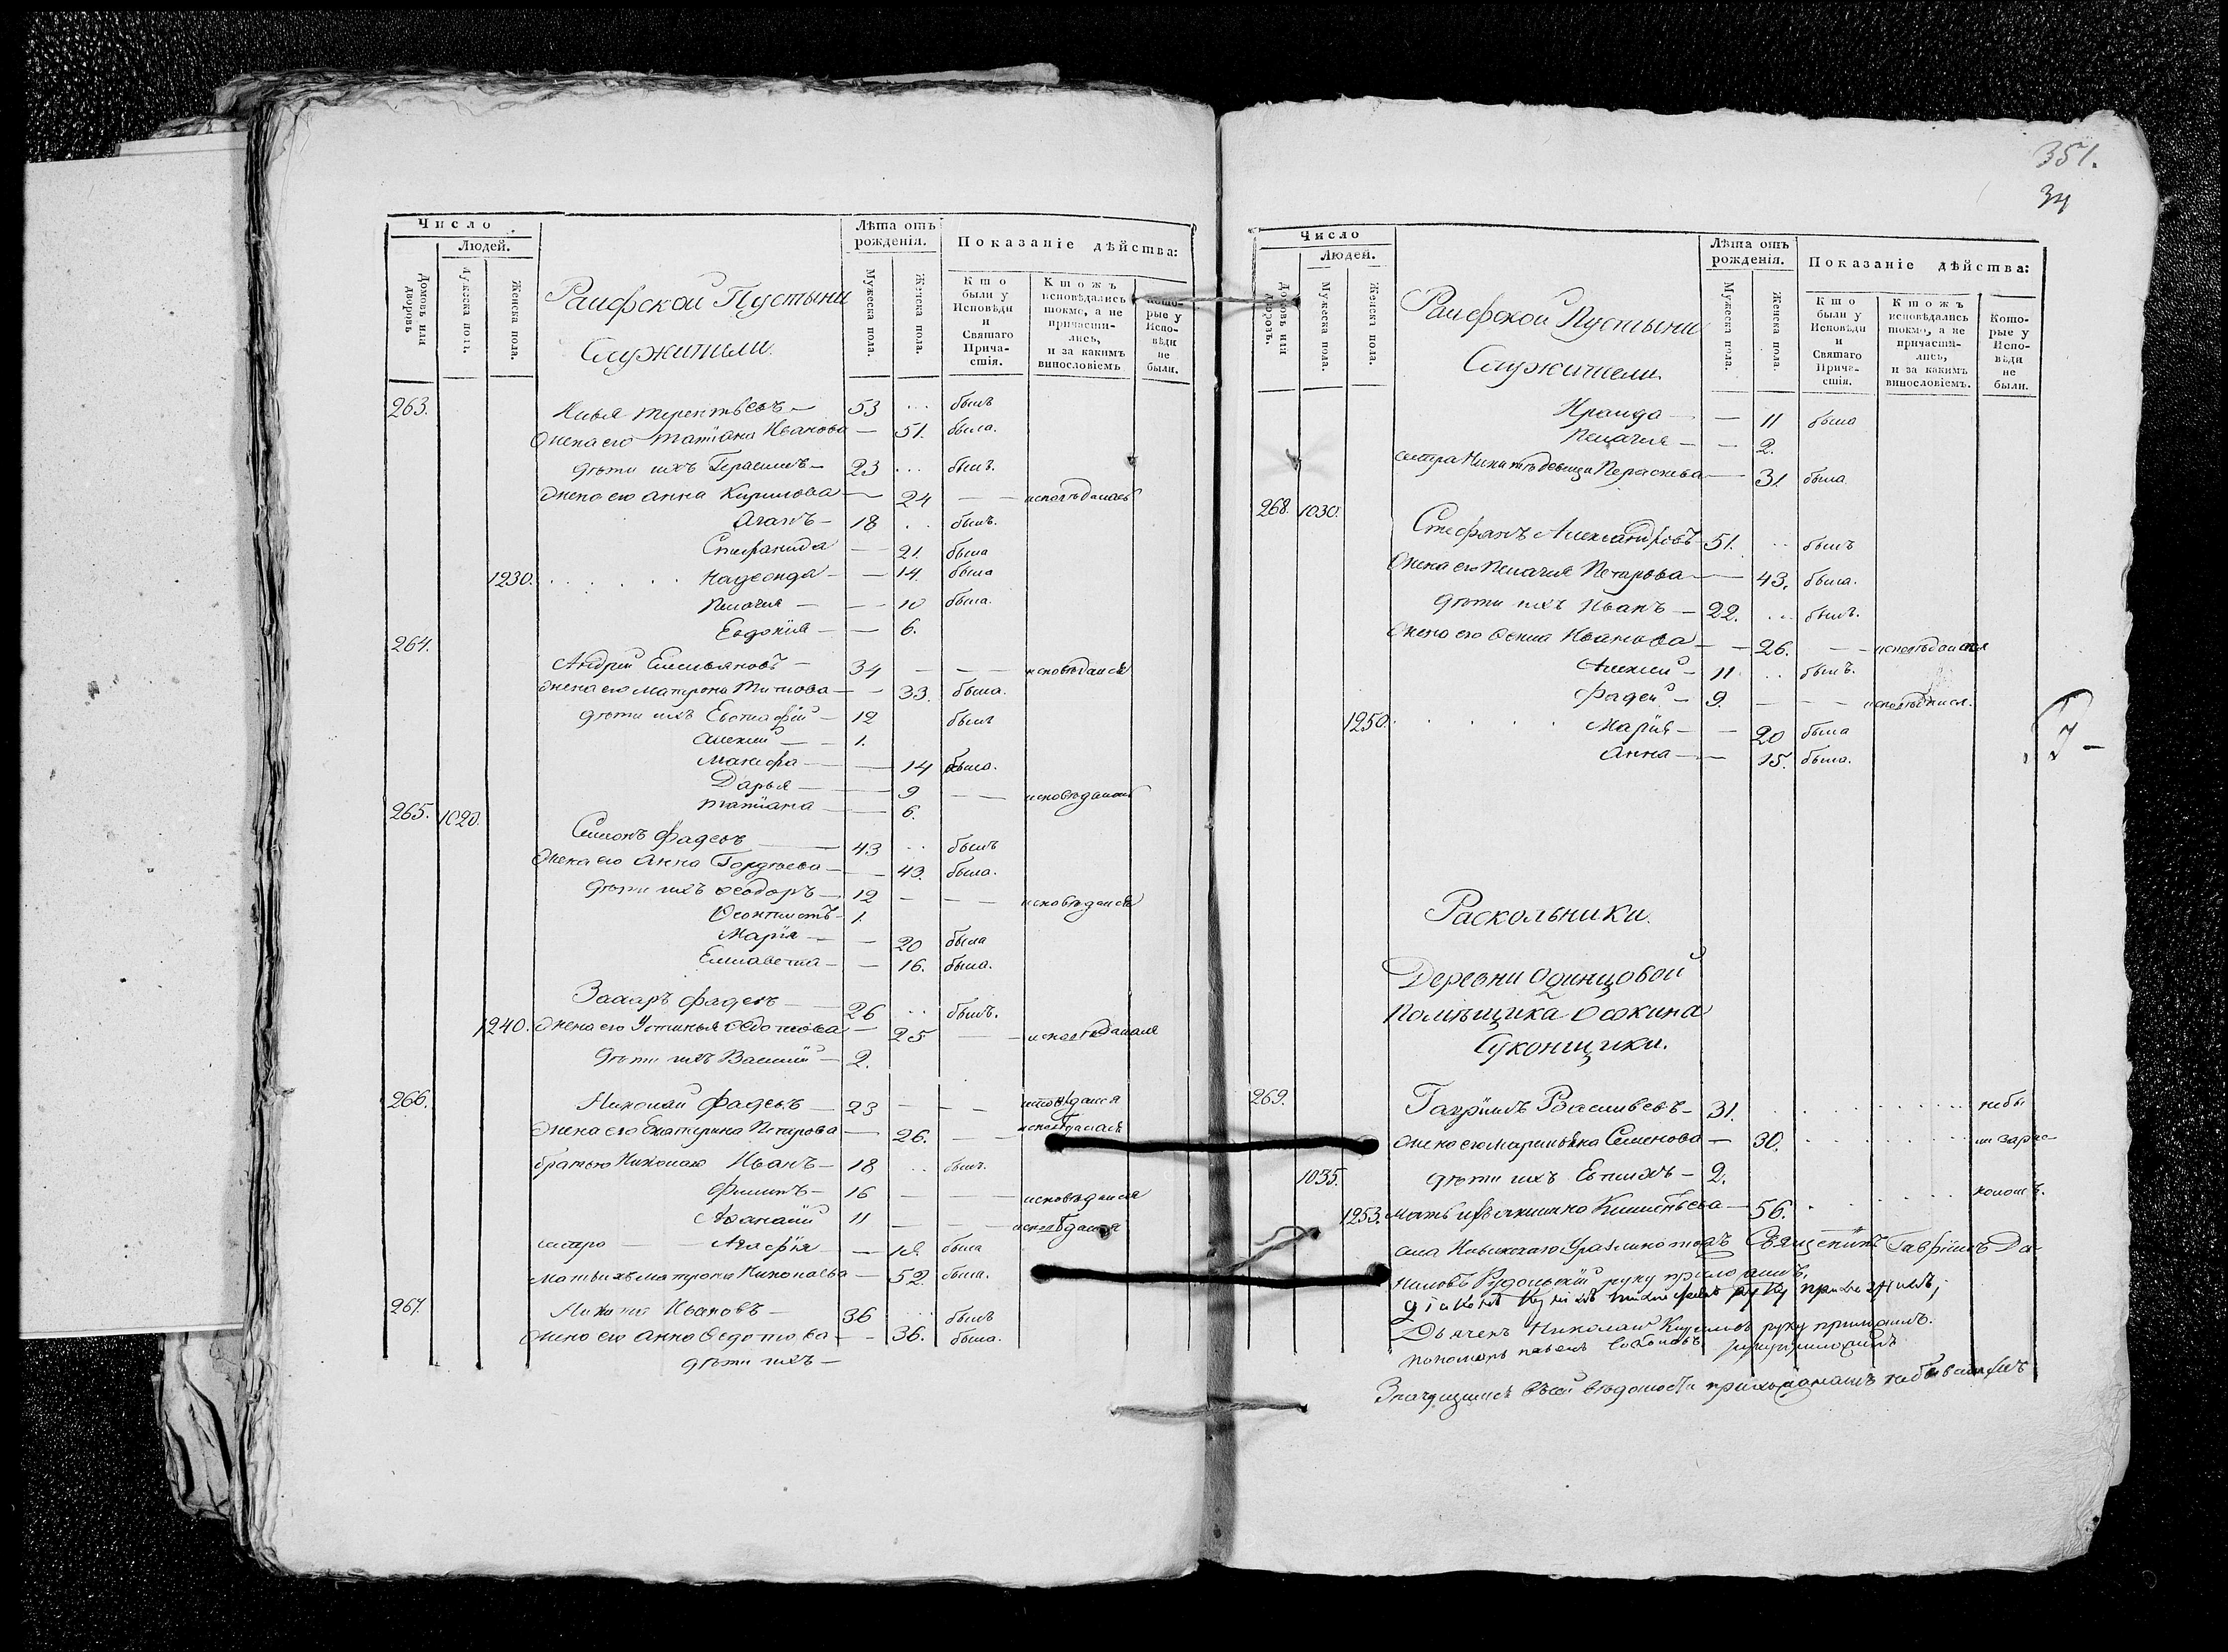 Число
Людей.
Домовъ или дворовъ
Мужеска пола.
Женска пола.
Раифской Пустыни
Служители.
Лѣта отъ рожденія.
Мужеска пола.
Женска пола.
Показаніе дѣйства:
Кто были у Исповѣди и Святаго Причастія.
Ктожъ исповѣдались токмо, а не причастились, и за какимъ винословіемъ
Которые у Исповѣди не были.
263. Илья Терентьевъ — 53 ... былъ
Жена его Татіана Иванова — 51. была.
дѣти ихъ Герасимъ — 23 ... былъ.
Жена его Анна Кирилова — 24 — — исповѣдалась
Агапъ — 18 . . былъ.
Стефанида — 21. была
1230. . . . . . Надежда — — 14. была
Пелагия — — 10 была.
Евдокия — — 6.
264.
Андрей Емельяновъ — 34 — — — исповѣдался
Жена его Матрона Титова — — 33. была.
дѣти ихъ Евстафій — 12 былъ
Алексей — — 1.
Марфа — — 14 была.
Дарья — — 9 — — исповѣдалась
Татіана — — 6.
265. 1020.
Симонъ Фадеевъ — 43 .. былъ
Жена его Анна Гордѣева — — 43. была.
дѣти ихъ Ѳеодоръ — 12 — — — исповѣдался
Ѳеоктистъ — 1.
Марія — — 20 была
Елисавета — — 16. была.
Захаръ Фадеевъ — 26 .. былъ.
1240. Жена его Устинья Ѳедотова — 25 — — исповѣдалася
дѣти ихъ Василій — 2.
266. Николай Фадеевъ — 23 — — — исповѣдался
Жена его Екатерина Петрова — 26. — — исповѣдалась
братья Николая Иванъ — 18 .. былъ.
Филипъ — 16 — — — исповѣдался
Аѳанасій 11 — — — исповѣдался
сестра — Агафія — — 18 была
Мать ихъ Матрона Николаева — 52. была.
267. Никита Ивановъ — 36 ... былъ
Жена его Анна Ѳедотова — — 36. была.
дѣти ихъ —
351.
34
Число
Людей.
Домовъ или дворовъ.
Мужеска пола.
Женска пола.
Раифской Пустыни
Служители.
Лѣта отъ рожденія.
Мужеска пола.
Женска пола.
Показаніе дѣйства:
Кто были у Исповѣди и Святаго Причастія.
Ктожъ исповѣдались токмо, а не причастились, и за какимъ винословіемъ.
Которые у Исповѣди не были.
Ираида — — 11 была
Пелагия — — 2.
сестра Никиты девица Параскева — 31 была.
268. 1030.
Стефанъ Александровъ — 51. .. былъ
Жена его Пелагия Петрова — — 43. была.
дѣти ихъ Иванъ — 22. ... былъ.
Жена его Ѳекла Иванова — — 26. — — исповѣдалася
Алексей — 11 .. былъ.
Фадей — 9. — — — исповѣдался.
1250. . . . . Марія — — 20 была
Анна — — 15. была.
Раскольники.
Деревни Одинцовой
Помѣщика Осокина
Суконщики.
269. Гаврiилъ Васильевъ — 31. . . . . . . . небы
Жена его Марьяна Семенова — 30. . . . . . . ли за рас-
1035. дѣти ихъ Евтихъ — 2. колом
1253. Мать ихъ Акилина — 56. . . . . .
Священникъ Гаврiилъ Да-
ниловъ руку приложилъ.
діаконъ руку приложилъ;
Дьячекъ Николай Кириловъ руку приложилъ.
пономарь руку приложилъ
Значущимся въ сей вѣдомости прихожанамъ